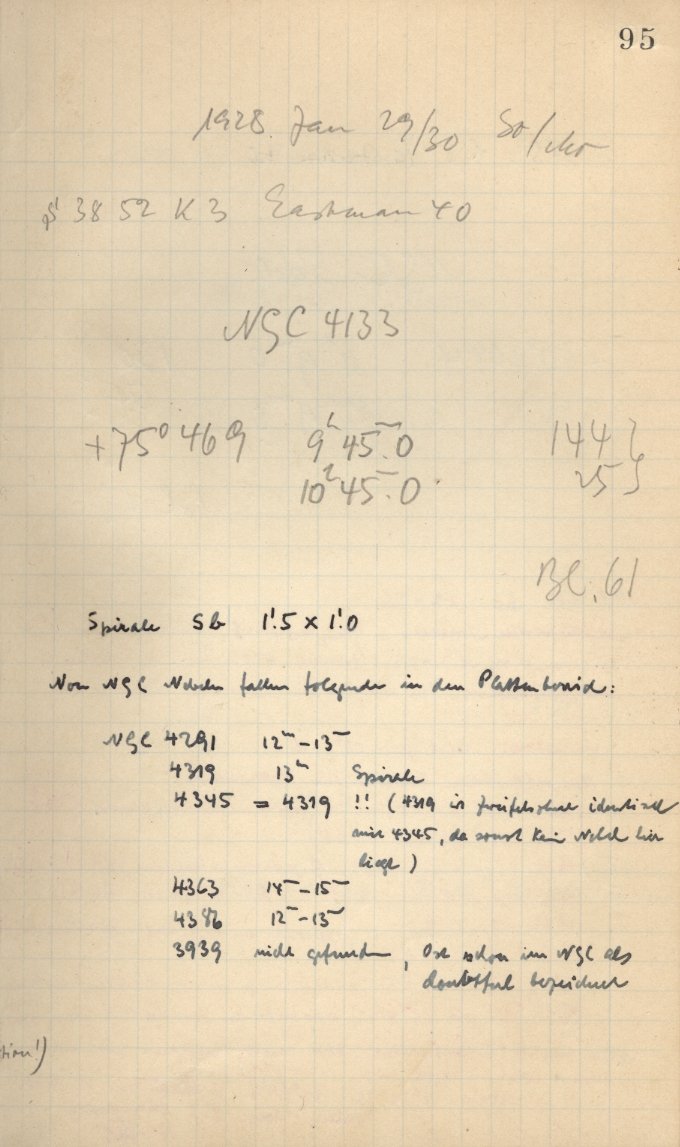 95
1928 Jan 29/30 So/Mo
3852 K3 Eastman 40
NGC 4133
+75° 469 9ʰ 45ᵐ.0 144 }
10ʰ 45ᵐ.0 25 }
61
Spirale Sb 1'.5 × 1'.0
Von NGC Nebeln fallen folgende in den Plattenbereich:
NGC 4291 12ᵐ–13ᵐ
4319 13ᵐ Spirale
4345 = 4319 !! (4319 ist zweifelsohne identisch
mit 4345, da sonst kein Nebel hier
liegt)
4363 14ᵐ–15ᵐ
4386 12ᵐ–13ᵐ
3939 nicht gefunden, Ort schon im NGC als
doubtful bezeichnet
tion!)